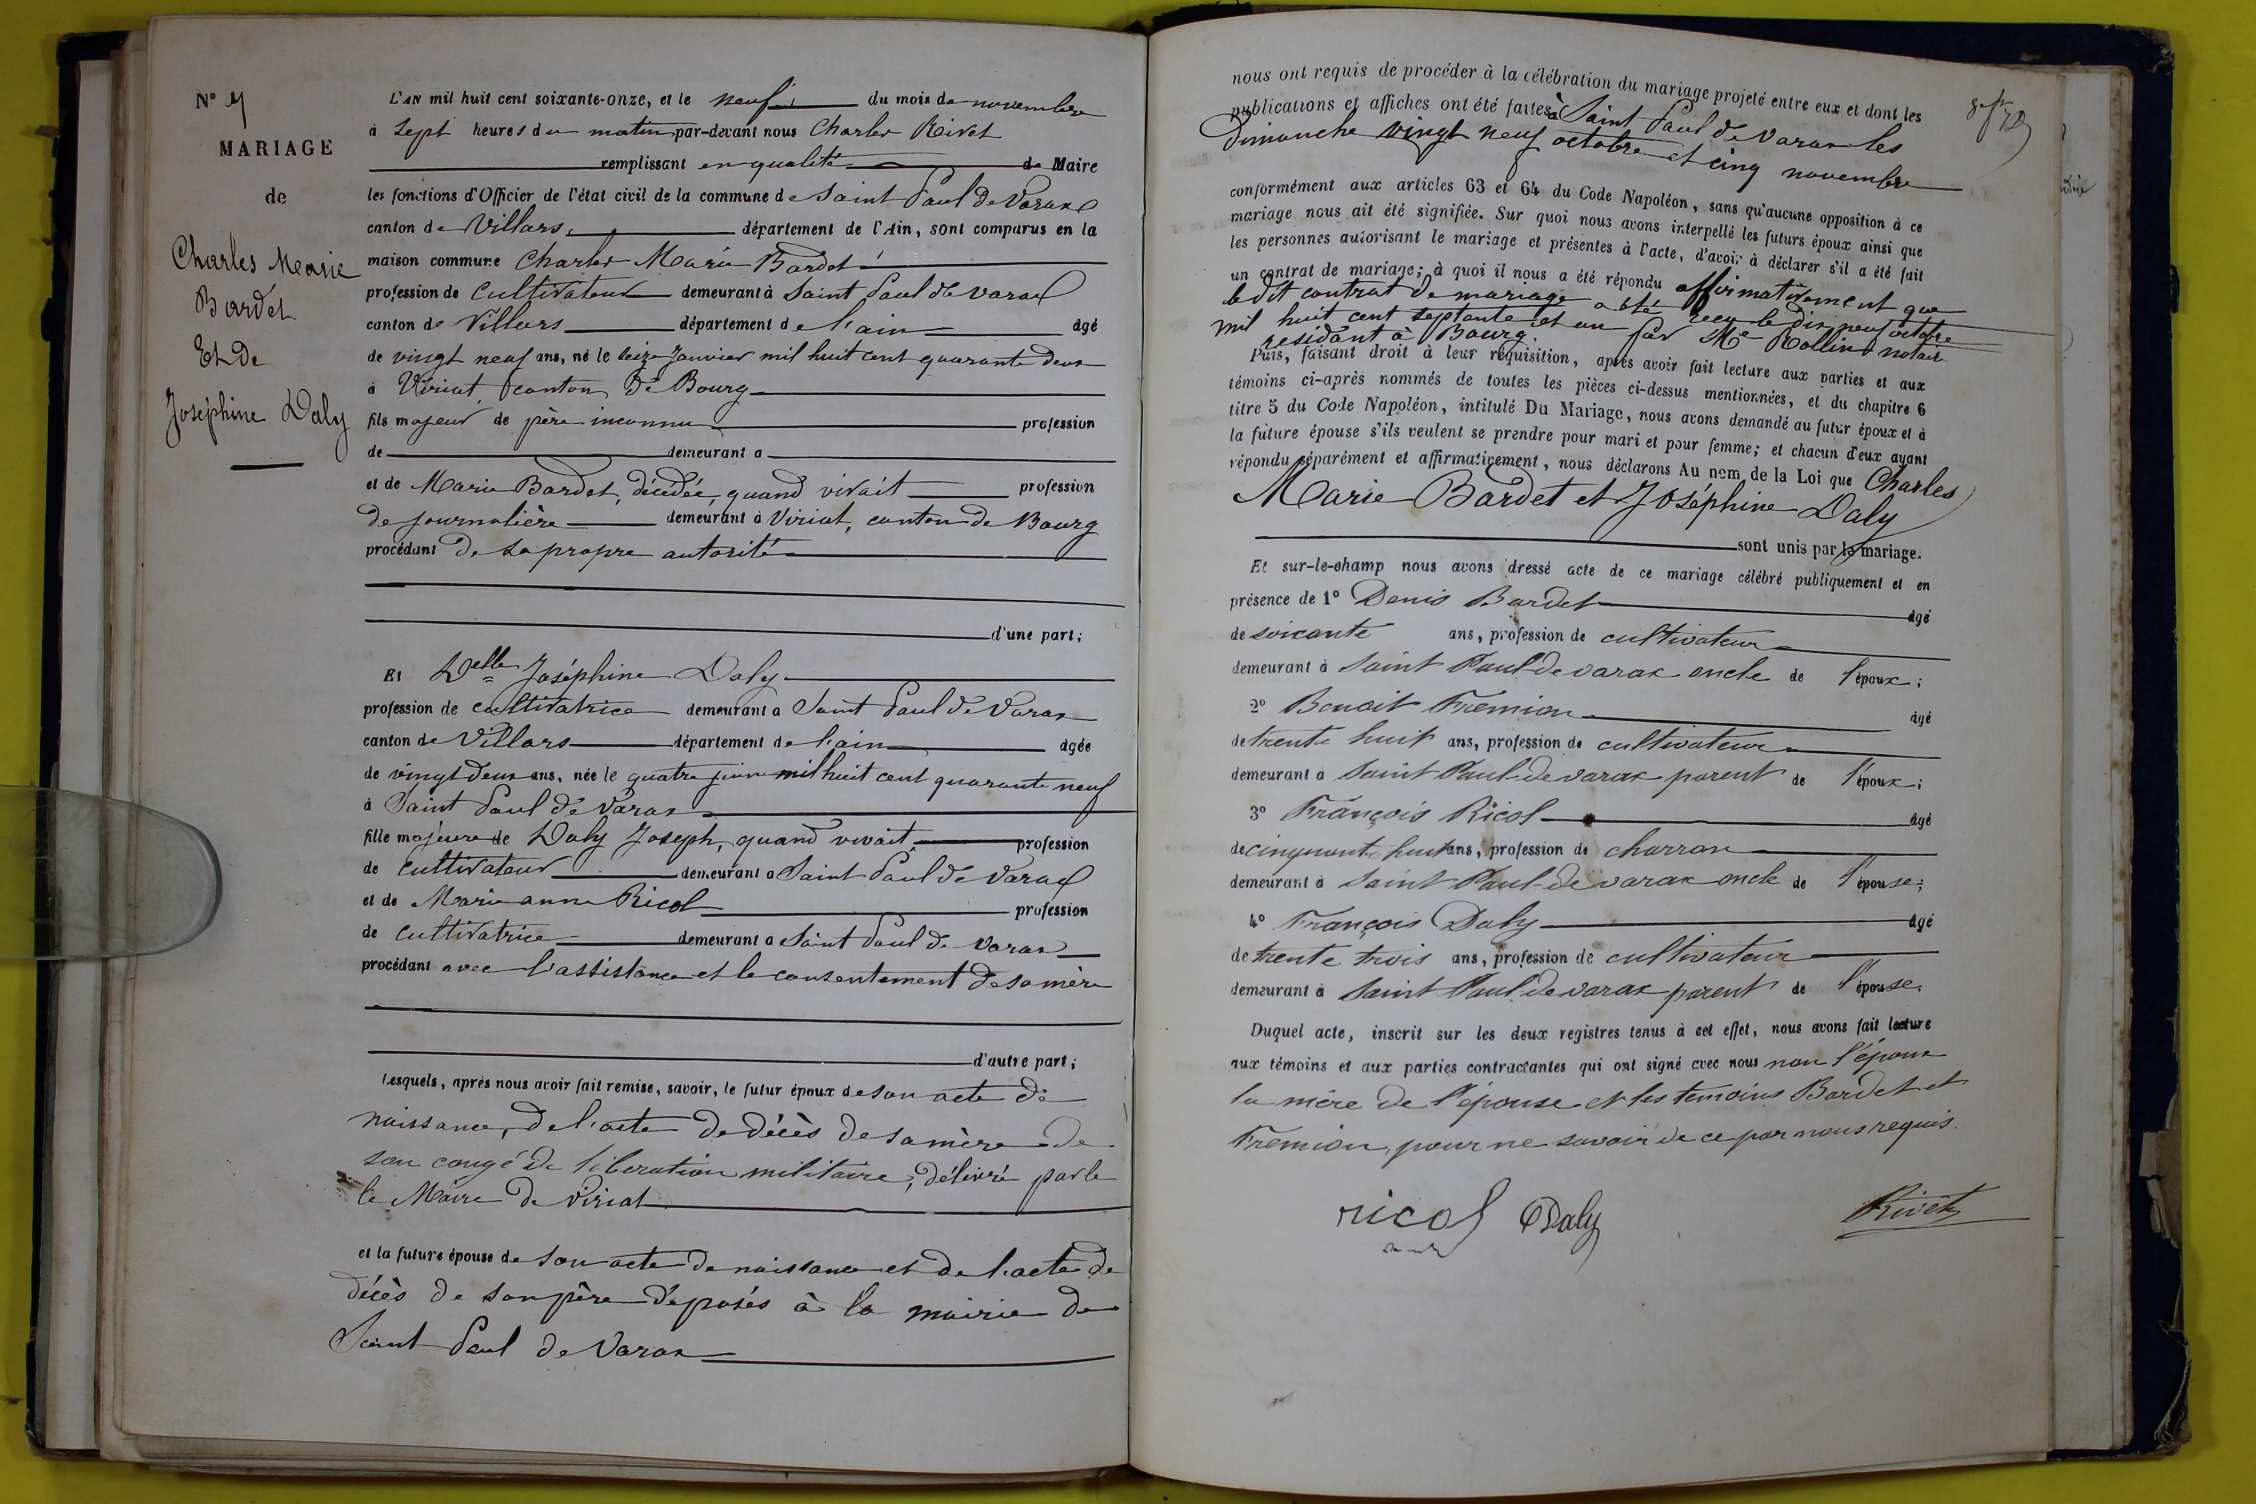 N°
MARIAGE
de
Charles Marie
Bardet
Et de
Joséphine Daly
L'AN mil huit cent soixante-onze, et le neuf du mois de novembre
à sept heures du matin par-devant nous Charles Rivet
remplissant en qualité de Maire
les fonctions d'Officier de l'état civil de la commune de Saint Paul de Varax
canton de Villars, département de l'Ain, sont comparus en la
maison commune Charles Marie Bardet
profession de Cultivateur demeurant à Saint Paul de Varax
canton de Villars département de l'ain âgé
de vingt neuf ans, né le seize Janvier mil huit cent quarante deux
à Viriat, canton de Bourg
fils majeur de père inconnu profession
de demeurant à
et de Marie Bardet, décédée, quand vivait profession
de journalière demeurant à Viriat, canton de Bourg
procédant de sa propre autorité
d'une part;
Et Delle Joséphine Daly
profession de cultivatrice demeurant à Saint Paul de Varax
canton de Villars département de l'ain âgée
de vingt deux ans, née le quatre juin mil huit cent quarante neuf
à Saint Paul de Varax
fille majeure de Daly Joseph, quand vivait, profession
de cultivateur demeurant à Saint Paul de Varax
et de Marie anne Ricol profession
de cultivatrice demeurant à Saint Paul de Varax
procédant avec l'assistance et le consentement de sa mère
d'autre part;
Lesquels, après nous avoir fait remise, savoir, le futur époux de son acte de
naissance, de l'acte de décès de sa mère de
son congé de libération militaire, délivré par le
le Maire de Viriat
et la future épouse de son acte de naissance et de l'acte de
décès de son père déposés à la mairie de
Saint Paul de Varax
nous ont requis de procéder à la célébration du mariage projeté entre eux et dont les
publications et affiches ont été faites à Saint Paul de Varax les
Dimanche vingt neuf octobre et cinq novembre
conformément aux articles 63 et 64 du Code Napoléon, sans qu'aucune opposition à ce
mariage nous ait été signifiée. Sur quoi nous avons interpellé les futurs époux ainsi que
les personnes autorisant le mariage et présentes à l'acte, d'avoir à déclarer s'il a été fait
un contrat de mariage; à quoi il nous a été répondu affirmativement que
le dit contrat de mariage a été reçu le dix neuf octobre
mil huit cent septante et un par Me Rollin notaire
résidant à Bourg.
Puis, faisant droit à leur réquisition, après avoir fait lecture aux parties et aux
témoins ci-après nommés de toutes les pièces ci-dessus mentionnées, et du chapitre 6
titre 5 du Code Napoléon, intitulé Du Mariage, nous avons demandé au futur époux et à
la future épouse s'ils veulent se prendre pour mari et pour femme; et chacun d'eux ayant
répondu séparément et affirmativement, nous déclarons Au nom de la Loi que Charles
Marie Bardet et Joséphine Daly
sont unis par le mariage.
Et sur-le-champ nous avons dressé acte de ce mariage célébré publiquement et en
présence de 1° Denis Bardet âgé
de soixante ans, profession de cultivateur
demeurant à Saint Paul de varax oncle de l'époux;
2° Benoit Fremion âgé
de trente huit ans, profession de cultivateur
demeurant à Saint Paul-de varax parent de l'époux;
3° François Ricol âgé
de cinquante huit ans, profession de charron
demeurant à Saint Paul-de varax oncle de l'épouse;
4° François Daly âgé
de trente trois ans, profession de cultivateur
demeurant à Saint Paul de varax parent de l'épouse.
Duquel acte, inscrit sur les deux registres tenus à cet effet, nous avons fait lecture
aux témoins et aux parties contractantes qui ont signé avec nous non l'époux
la mère de l'épouse et les temoins Bardet et
Fremion, pour ne savoir de ce par nous requis.
ricol Daly Rivet